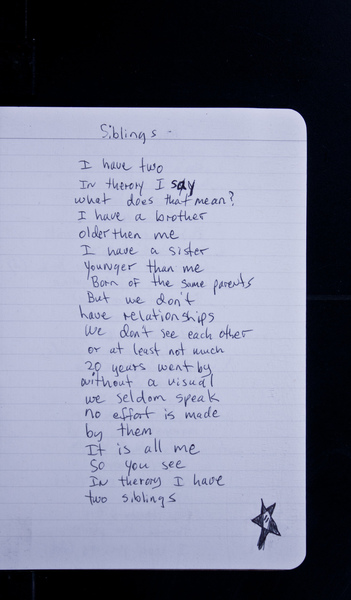 Siblings -
I have two
In therory I say
what does that mean?
I have a brother
older then me
I have a sister
younger than me
Born of the same parents
But we don't
have relationships
We don't see each other
or at least not much
20 years went by
without a visual
we seldom speak
no effort is made
by them
It is all me
So you see
In therory I have
two siblings